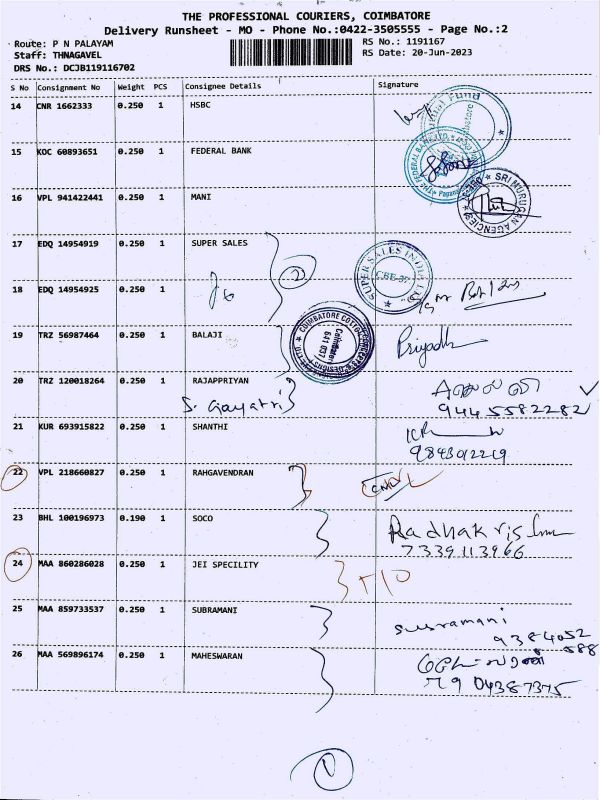 THE PROFESSIONAL COURIERS, COIMBATORE
Delivery Runsheet - MO - Phone No.:0422-3505555 - Page No.:2
Route: P N PALAYAM
RS No.: 1191167
Staff: THNAGAVEL
RS Date: 20-Jun-2023
DRS No.: DCJB119116702
S No Consignment No Weight PCS Consignee Details Signature
14 CNR 1662333 0.250 1 HSBC
15 KOC 60893651 0.250 1 FEDERAL BANK
THE FEDERAL BANK LTD
16 VPL 941422441 0.250 1 MANI
SRI MURUGAN AGENCIES
17 EDQ 14954919 0.250 1 SUPER SALES
2
SUPER SALES INDIA LTD
CBE-37
18 EDQ 14954925 0.250 1
19 TRZ 56987464 0.250 1 BALAJI
Priyadh
Coimbatore
641 037
20 TRZ 120018264 0.250 1 RAJAPPRIYAN
S. Gayatri
9445582282
21 KUR 693915822 0.250 1 SHANTHI
9843012219
22 VPL 218660827 0.250 1 RAHGAVENDRAN
23 BHL 100196973 0.190 1 SOCO
Radhakrishnan
7339113966
24 MAA 860286028 0.250 1 JEI SPECILITY
25 MAA 859733537 0.250 1 SUBRAMANI
Subramani
9384052
588
26 MAA 569896174 0.250 1 MAHESWARAN
7904387375
1